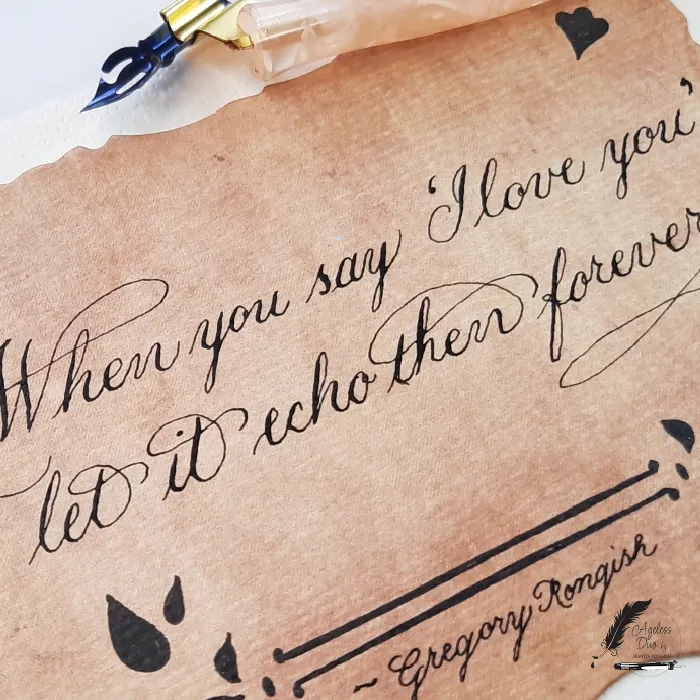 When you say 'I love you'
let it echo then forever
~ Gregory Rongish
Ageless
Duo by